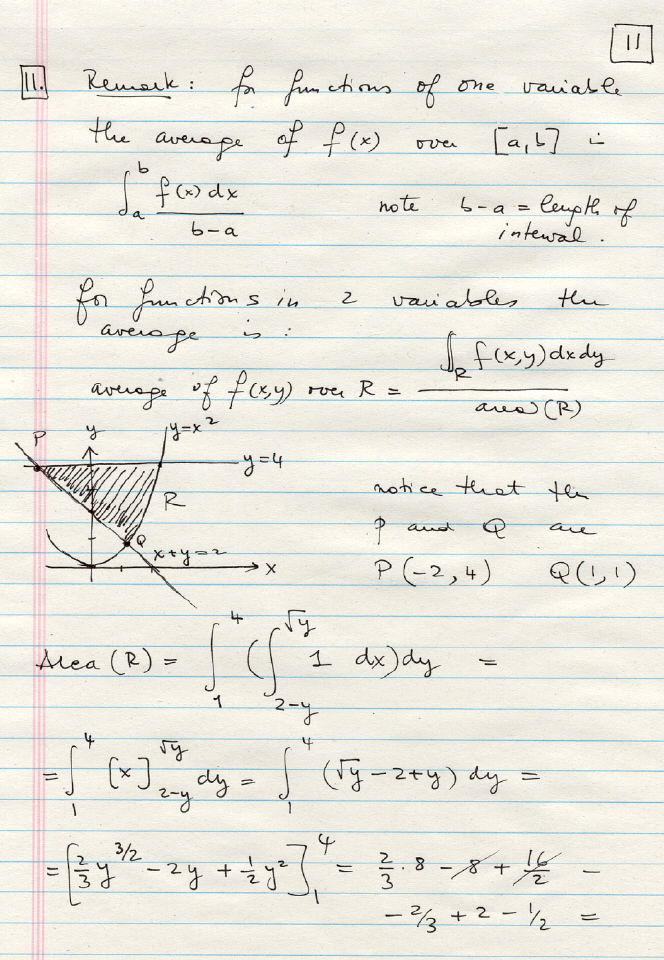 11
11. Remark: for functions of one variable
the average of f(x) over [a,b] is
∫_a^b f(x) dx / (b-a)    note b-a = length of
interval.
for functions in 2 variables the
average is:
average of f(x,y) over R = ∬_R f(x,y) dx dy / area (R)
P y y=x²
y=4
R
Q x+y=2
x
notice that the
P and Q are
P(-2,4) Q(1,1)
Area (R) = ∫_1^4 (∫_{2-y}^{√y} 1 dx) dy =
= ∫_1^4 [x]_{2-y}^{√y} dy = ∫_1^4 (√y - 2+y) dy =
= [2/3 y^{3/2} - 2y + 1/2 y²]_1^4 = 2/3 · 8 - 8 + 16/2 -
- 2/3 + 2 - 1/2 =